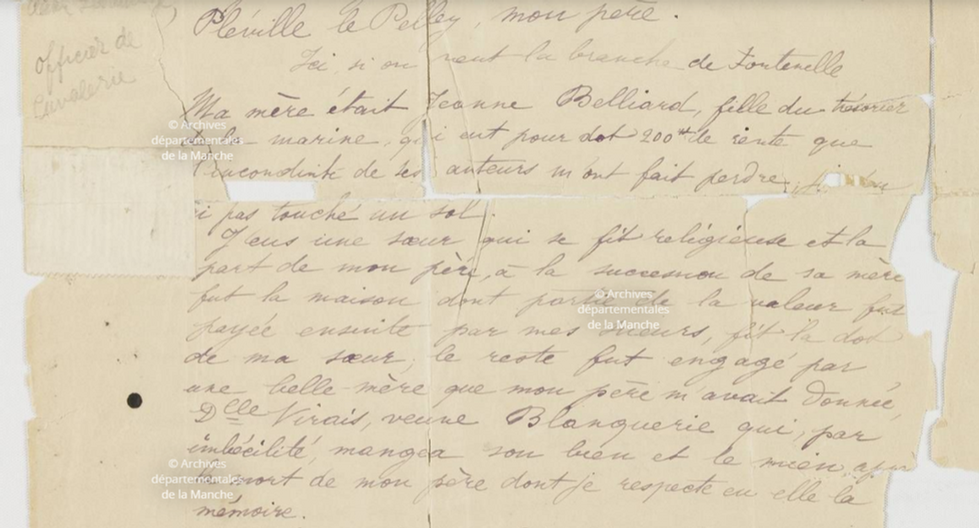 officier de
Cavalerie
Pléville le Pelley, mon père.
Ici, si on veut la branche de Fontenelle
Ma mère était Jeanne Belliard, fille du trésorier
de la marine, qui eut pour dot 200# de rente que
l'inconduite de ses auteurs m'ont fait perdre,
ai pas touché un sol.
J'eus une sœur qui se fit religieuse et la
part de mon père, à la succession de sa mère
fut la maison dont partie de la valeur fut
payée ensuite par mes sueurs, fit la dot
de ma sœur, le reste fut engagé par
une belle-mère que mon père m'avait donnée,
Dlle Virais, veuve Blanquerie qui, par
imbécilité, mangea son bien et le mien, après
la mort de mon père dont je respecte en elle la
mémoire.
© Archives
départementales
de la Manche
© Archives
départementales
de la Manche
© Archives
départementales
de la Manche